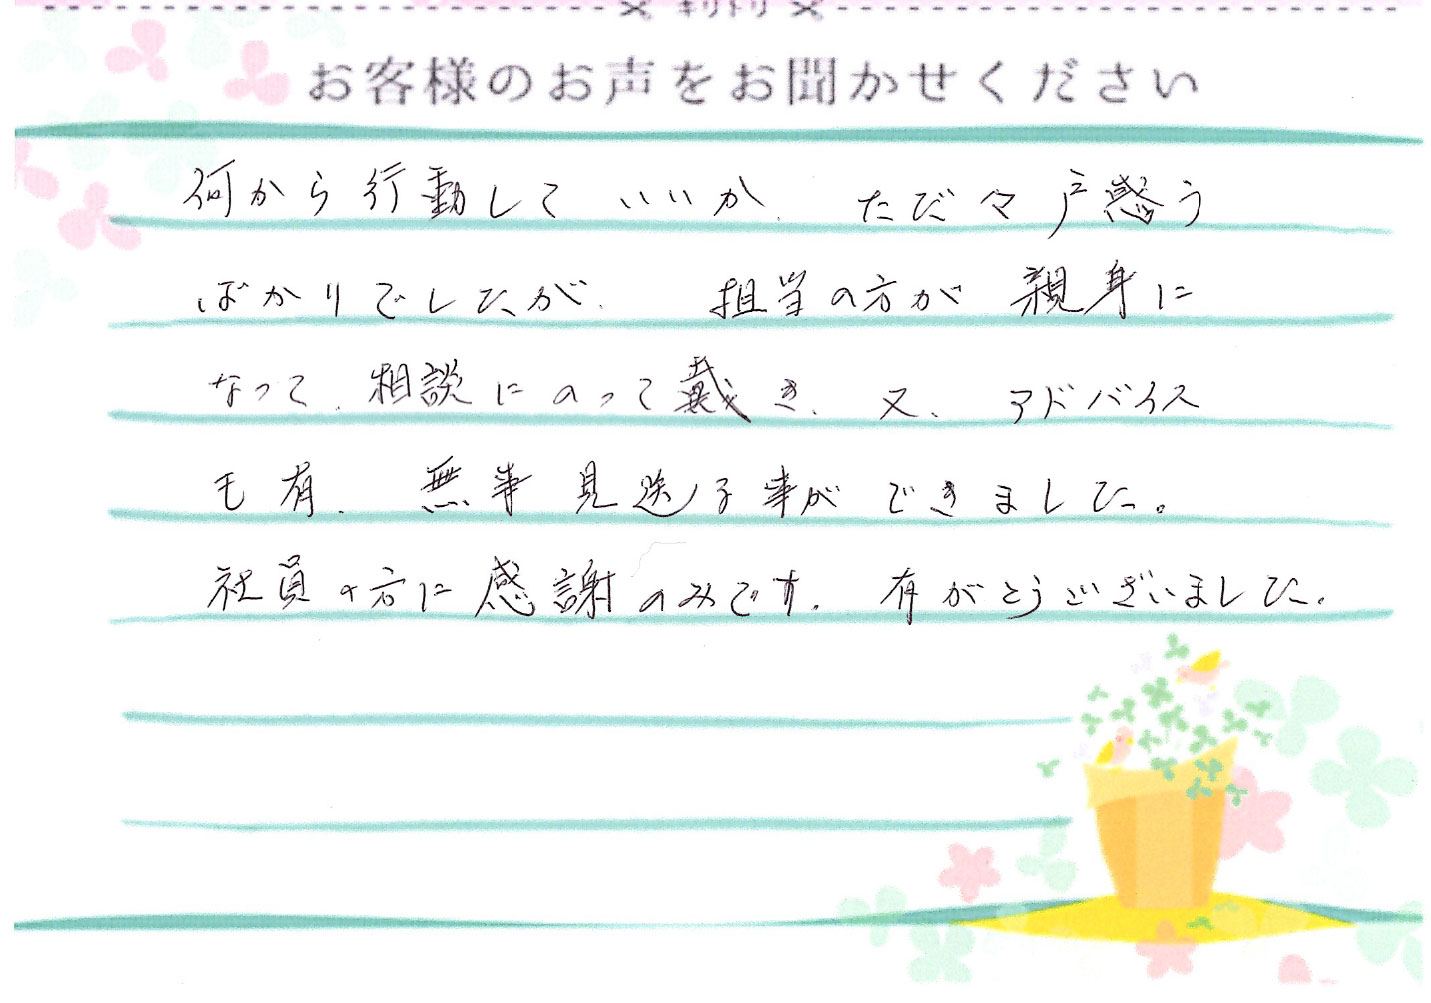 キリトリ
お客様のお声をお聞かせください
何から行動していいか、ただ々戸惑う
ばかりでしたが、担当の方が親身に
なって、相談にのって戴き、又、アドバイス
も有、無事見送る事ができました。
社員の方に感謝のみです。有がとうございました。